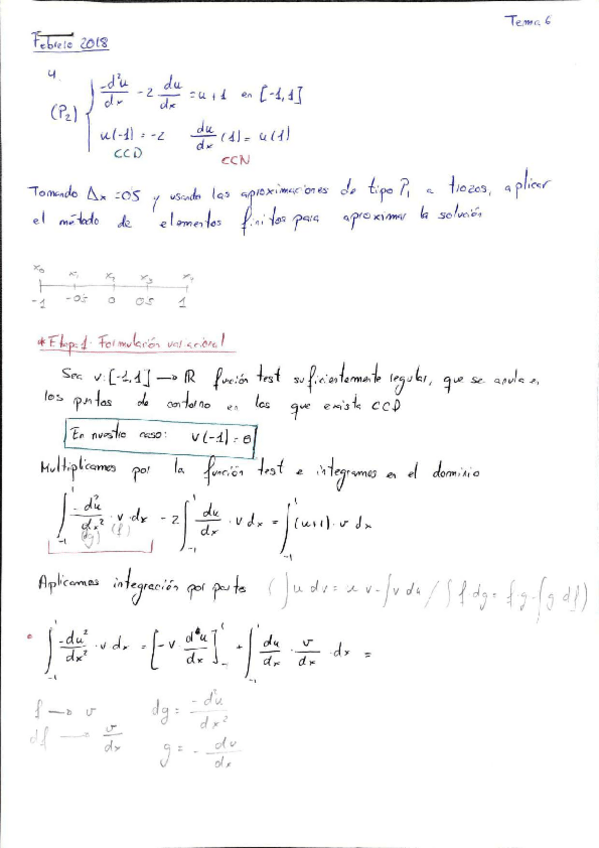 Tema 6
Febrero 2018
4.
(P₂) { -d²u/dx - 2 du/dx = u+1 en [-1,1]
u(-1) = -2 du/dx (1) = u(1)
CCD CCN
Tomando Δx = 05 y usando las aproximaciones de tipo P₁ a trozos, aplicar
el método de elementos finitos para aproximar la solución
x₀ x₁ x₂ x₃ x₄
-1 -05 0 05 1
*Etapa 1: Formulación variacional
Sea v: [-1,1] → ℝ función test suficientemente regular, que se anula en
los puntos de contorno en los que exista CCD
En nuestro caso: v(-1) = 0
Multiplicamos por la función test e integramos en el dominio
∫₋₁¹ -d²u/dx² · v dx - 2∫₋₁¹ du/dx · v dx = ∫₋₁¹ (u+1) · v dx
(g) (f)
Aplicamos integración por partes (∫u dv = u v - ∫v du / ∫f·dg = f·g - ∫g df)
• ∫₋₁¹ -du²/dx² · v dx = [-v du/dx]₋₁¹ + ∫₋₁¹ du/dx · v/dx · dx =
f → v dg = -d²u/dx²
df → v/dx g = - du/dx